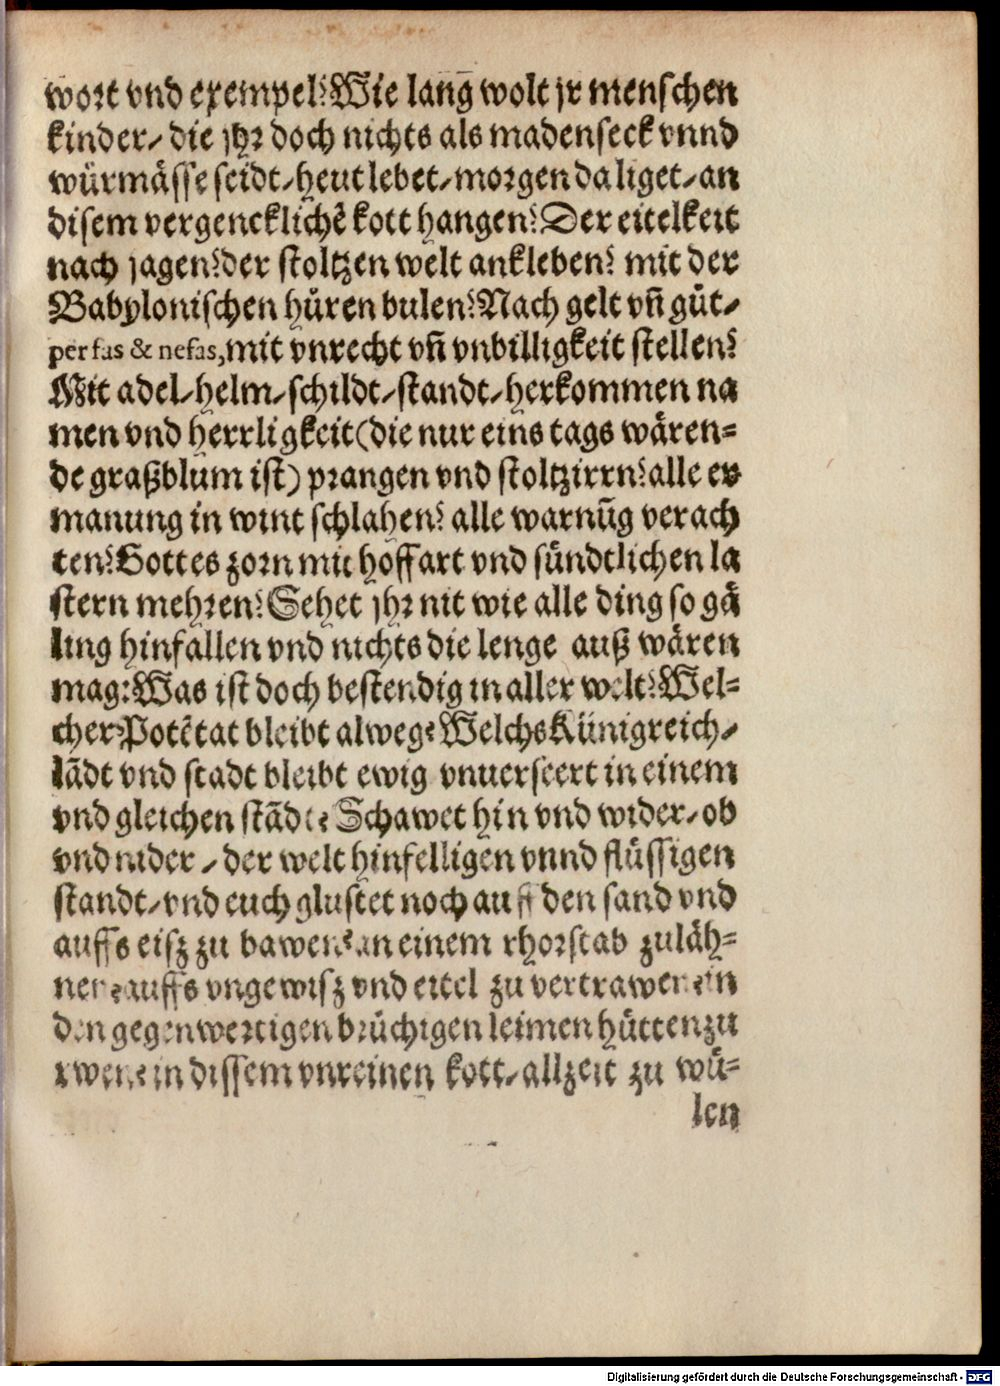 wort vnd exempel? Wie lang wolt jr menschen
kinder/ die jhr doch nichts als madenseck vnnd
würmässe seidt/ heut lebet/ morgen da liget/ an
disem vergencklichẽ kott hangen? Der eitelkeit
nach jagen? der stoltzen welt ankleben? mit der
Babylonischen hůren bulen? Nach gelt vñ gůt/
per fas & nefas, mit vnrecht vñ vnbilligkeit stellen?
Mit adel/ helm/ schildt/ standt/ herkommen na
men vnd herrligkeit (die nur eins tags wären=
de graßblům ist) prangen vnd stoltzirrn? alle er
manung in wint schlahen? alle warnũg verach
ten? Gottes zorn mit hoffart vnd sündtlichen la
stern mehren? Sehet jhr nit wie alle ding so gä
ling hinfallen vnd nichts die lenge auß wären
mag? Was ist doch bestendig in aller welt? Wel=
cher Potẽtat bleibt alweg? Welchs Künigreich/
lãdt vnd stadt bleibt ewig vnuerseert in einem
vnd gleichen stãdt? Schawet hin vnd wider/ ob
vnd nider/ der welt hinfelligen vnnd flüssigen
standt/ vnd euch glustet noch auff den sand vnd
auffs eisz zu bawen? an einem rhorstab zuläh=
nen? auffs vngewisz vnd eitel zu vertrawen? in
den gegenwertigen brüchigen leimen hütten zu
rwen? in dissem vnreinen kott/ allzeit zu wů=
len
Digitalisierung gefördert durch die Deutsche Forschungsgemeinschaft - DFG